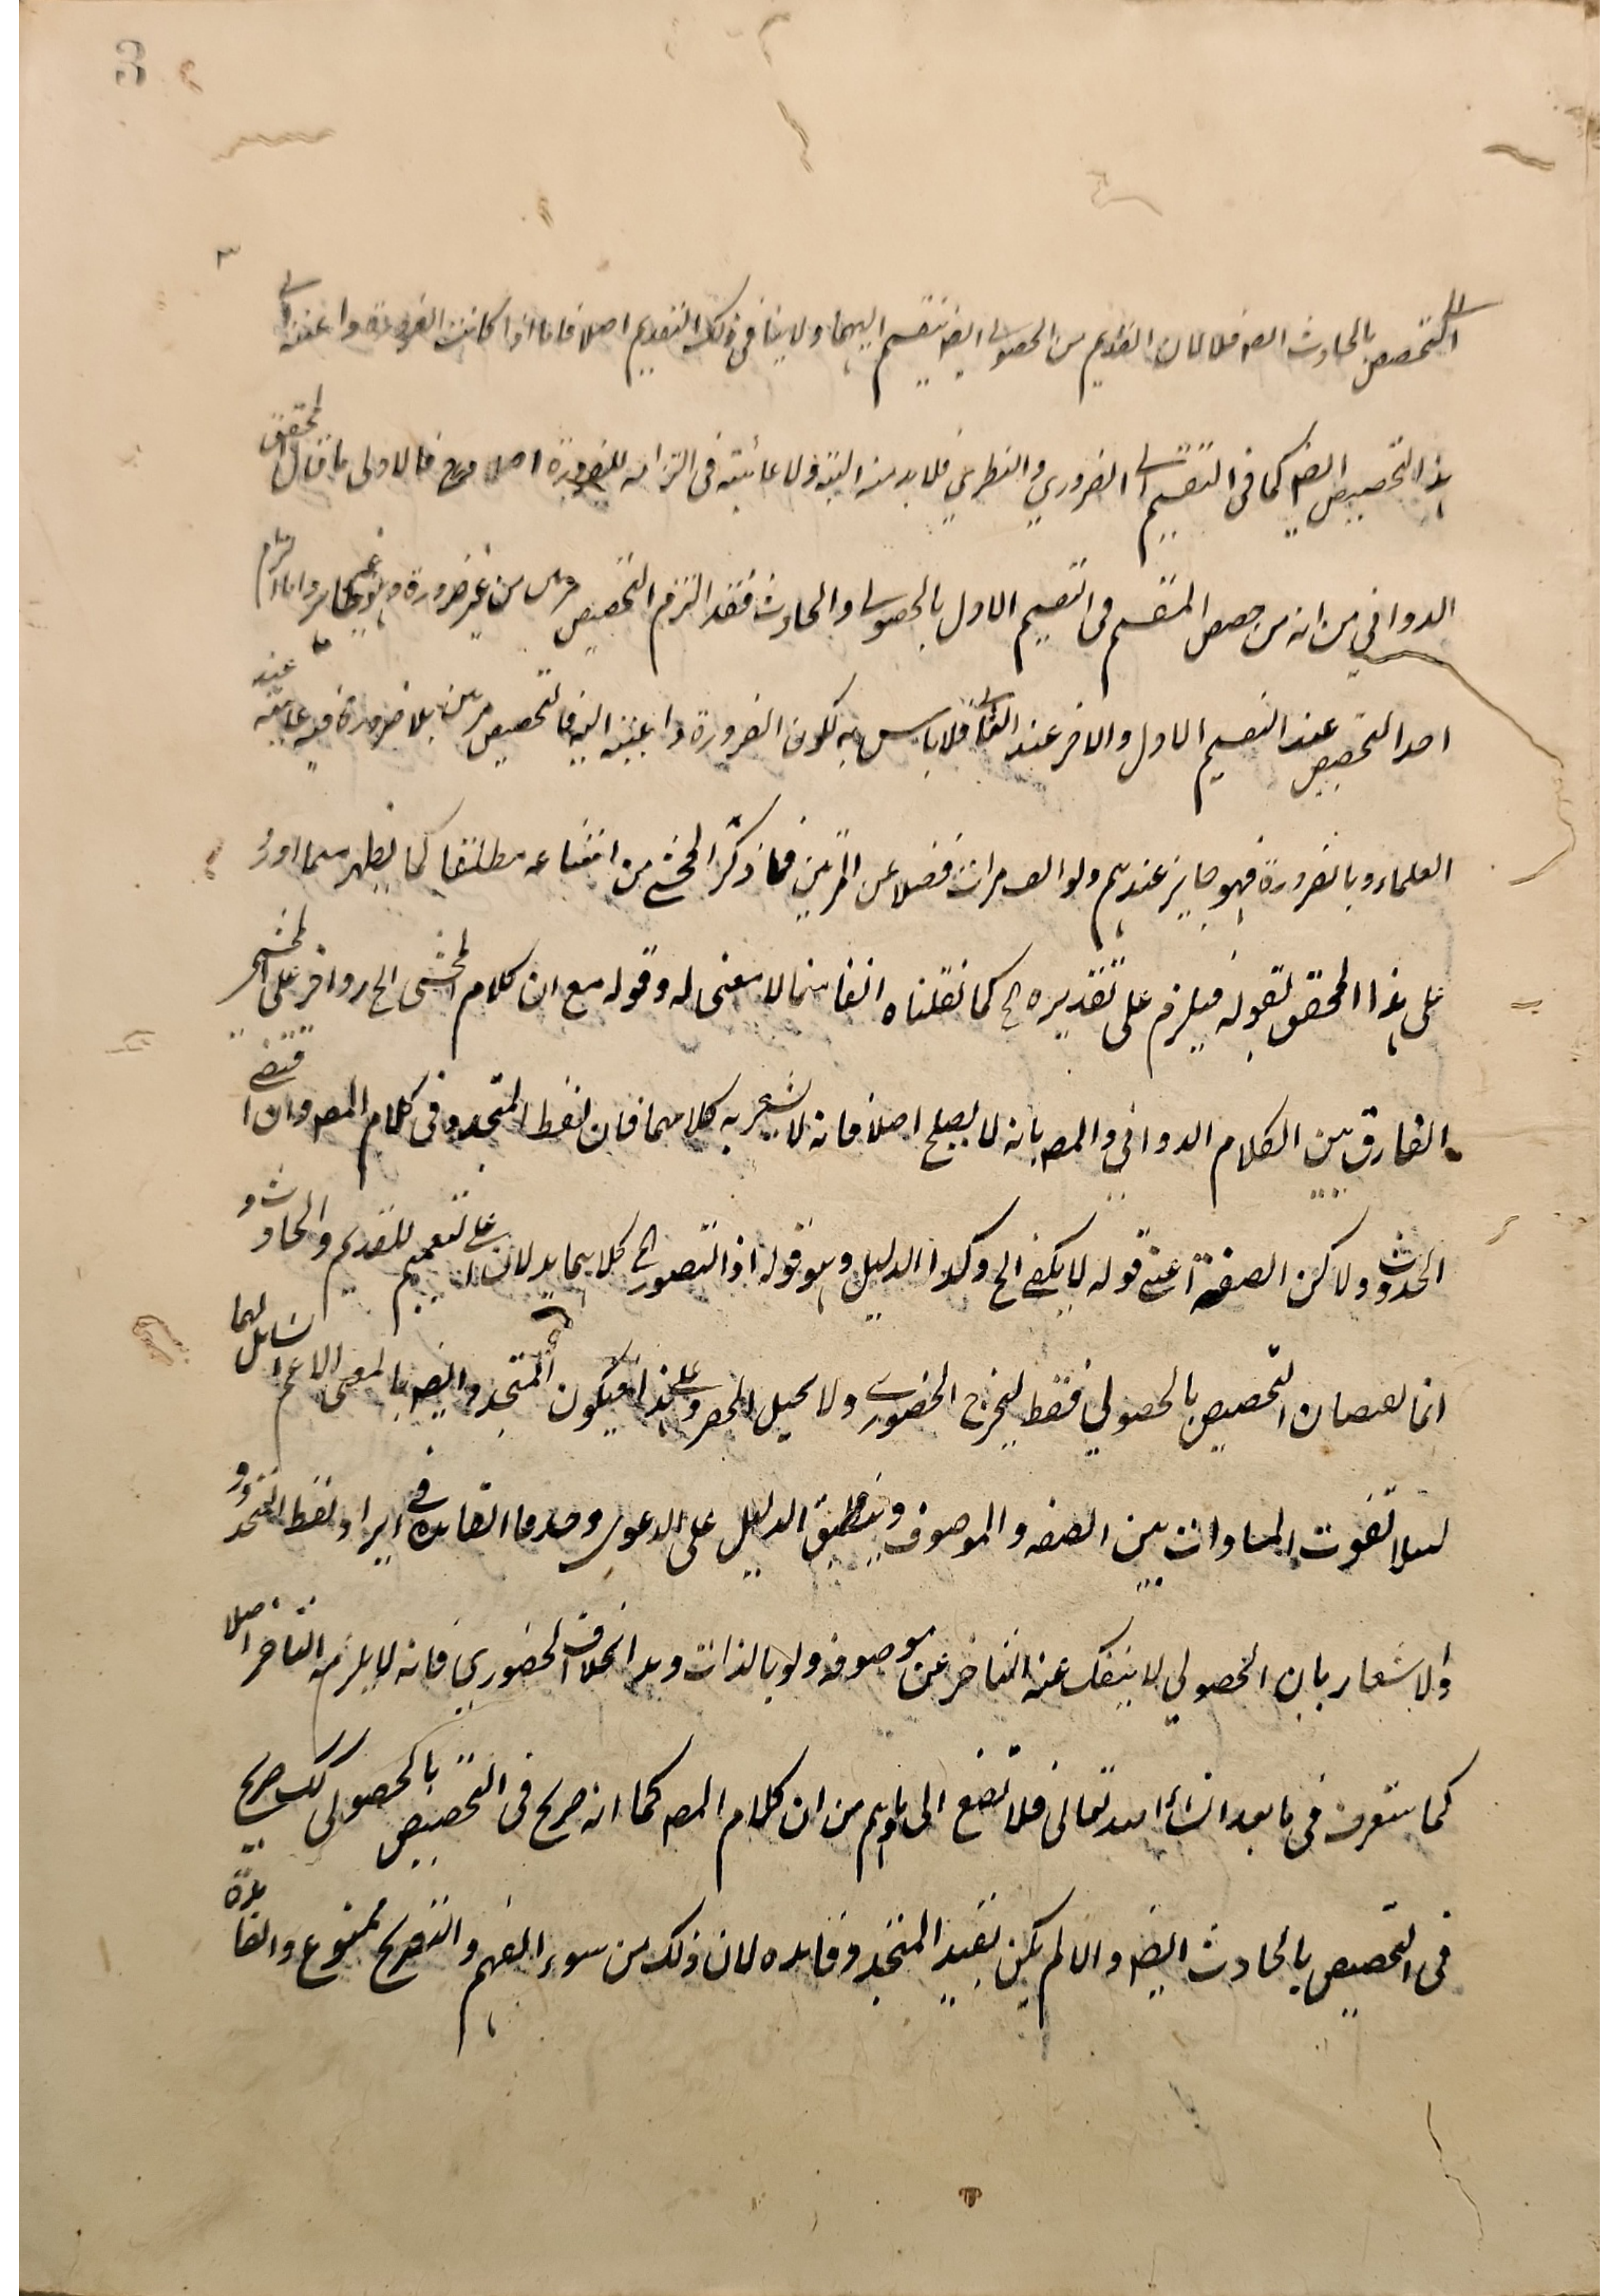 3
٣
التخصيص بالحادث ايضا فلا لان القديم من الحصولي ايضا ينقسم اليهما ولا ينافي ذلك التقديم اصلا فاما اذا كانت الضرورة داعية الى
هذا التخصيص ايضا كما في التقسيم الى الضروري والنظري فلا بد منه البتة ولا عائبة في التزامه للضرورة اصلا فالاولى ما قال المحقق
الدواني من انه من خصص المقسم في التقسيم الاول بالحصولي والحادث فقد التزم التخصيص مرتين من غير ضرورة واما التزام
احد التخصيص عند التقسيم الاول والاخر عند الثاني فلا باس به لكون الضرورة داعية اليه فالتخصيص مرتين بلا ضرورة فيه عائبة عند
العلماء وبالضرورة فهو جايز عندهم ولو الف مرات فضلا عن المرتين فما ذكره المحشي من امتناعه مطلقا كما يظهر مما اورد
على هذا المحقق بقوله فيلزم على تقديره الخ كما نقلناه انفا مما لا معنى له وقوله مع ان كلام المحشي الخ رد اخر على المحشي
الفارق بين الكلام الدواني والمصـ بانه لا يصلح اصلا فانه لا يشعر به كلامهما فان لفظ المتجدد في كلام المصـ وان اقتضى
الحدوث ولاكن الصفة اعني قوله لا يكفي الخ وكذا الدليل وهو قوله اذ التصور الخ كلاهما يدلان على تعميم للقديم والحادث و
انما يقتضيان التخصيص بالحصولي فقط ليخرج الحضوري ولا يحيل الحصر وعلى هذا فيكون المتجدد ايضا بالمعنى الاعم الشامل لهما
لئلا تفوت المساوات بين الصفة والموصوف وينطبق الدليل على الدعوى وحده فالفائدة في ايراد لفظ المتجدد و
والاشعار بان الحصولي لا ينفك عنه التاخر عن موصوفه ولو بالذات وهذا بخلاف الحضوري فانه لا يلزمه التاخر اصلا
كما ستعرف في ما بعد انشاء الله تعالى فلا تصغ الى ما يوهم من ان كلام المصـ كما انه صريح في التخصيص بالحصولي كذلك صريح
في التخصيص بالحادث ايضا والا لم يكن لتقييد المتجدد فايدة لان ذلك من سوء الفهم والتصريح ممنوع والفايدة